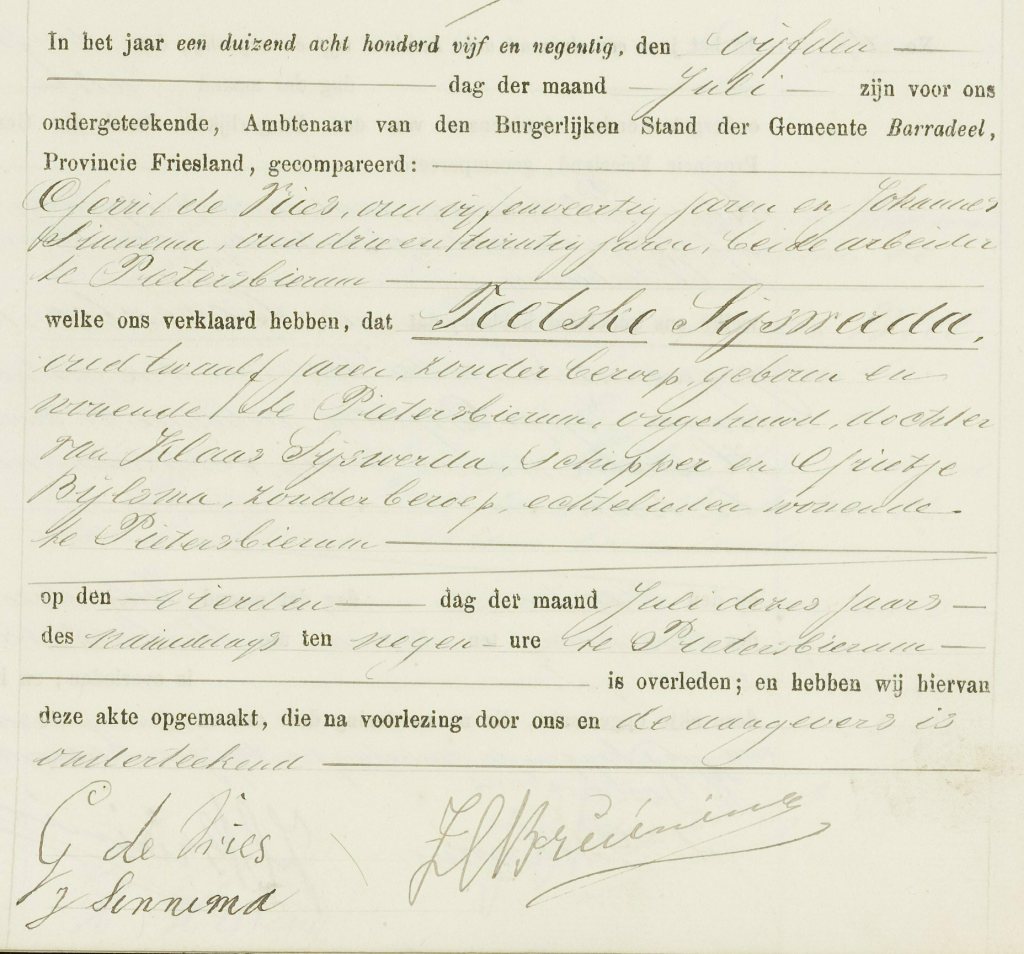 In het jaar een duizend acht honderd vijf en negentig, den vijfden
dag der maand Juli zijn voor ons
ondergeteekende, Ambtenaar van den Burgerlijken Stand der Gemeente Barradeel,
Provincie Friesland, gecompareerd:
Gerrit de Vries, oud vijfenveertig jaren en Johannes
Sinnema, oud drie en twintig jaren, beide arbeider
te Pietersbierum
welke ons verklaard hebben, dat Tietske Sijswerda,
oud twaalf jaren, zonder beroep, geboren en
wonende te Pietersbierum, ongehuwd, dochter
van Klaas Sijswerda, schipper en Grietje
Bijlsma, zonder beroep, echtelieden wonende
te Pietersbierum
op den vierden dag der maand Juli dezes jaars
des namiddags ten negen ure te Pietersbierum
is overleden; en hebben wij hiervan
deze akte opgemaakt, die na voorlezing door ons en de aangevers is
onderteekend
G de Vries
J Sinnema
Bruinina